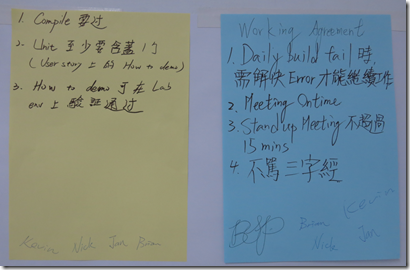 1. Compile 要过
2. Unit 至少要含蓋 1 个
(User story 上的 How to demo)
3. How to demo 可在 Lab
env 上驗証通过
Kevin Nick Jan Brian
Working Agreement
1. Daily build fail 時,
需解決 Error 才能繼續作
2. Meeting Ontime
3. Stand up Meeting 不超過
15 mins
4. 不罵三字經
Brian Kevin
Nick Jan